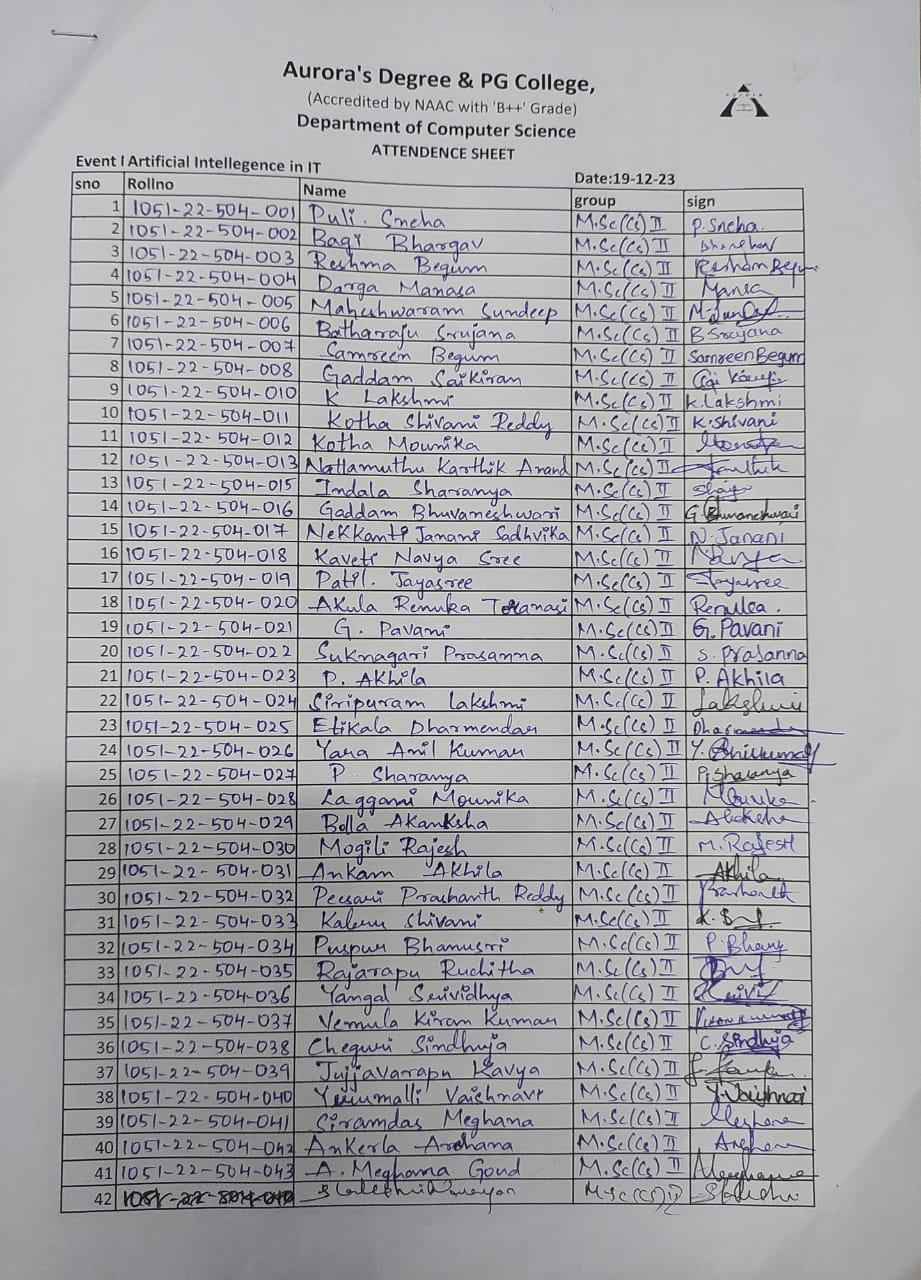 Aurora's Degree & PG College,
(Accredited by NAAC with 'B++' Grade)
Department of Computer Science
ATTENDENCE SHEET
Event I Artificial Intellegence in IT Date:19-12-23
sno Rollno Name group sign
1 1051-22-504-001 Puli. Sneha M.Sc(Cs) II P.Sneha.
2 1051-22-504-002 Bagi Bhargav M.Sc(Cs) II Bharghav
3 1051-22-504-003 Reshma Begum M.Sc(Cs) II
4 1051-22-504-004 Darga Manasa M.Sc(Cs) II
5 1051-22-504-005 Maheshwaram Sundeep M.Sc(Cs) II
6 1051-22-504-006 Batharaju Srujana M.Sc(Cs) II B Srujana
7 1051-22-504-007 Samreen Begum M.Sc(Cs) II Samreen Begum
8 1051-22-504-008 Gaddam SaiKiran M.Sc(Cs) II
9 1051-22-504-010 K Lakshmi M.Sc(Cs) II K.Lakshmi
10 1051-22-504-011 Kotha Shivani Reddy M.Sc(Cs) II K.Shivani
11 1051-22-504-012 Kotha Mounika M.Sc(Cs) II
12 1051-22-504-013 Nallamuthu Karthik Anand M.Sc(Cs) II
13 1051-22-504-015 Indala Sharanya M.Sc(Cs) II
14 1051-22-504-016 Gaddam Bhuvaneshwari M.Sc(Cs) II
15 1051-22-504-017 NeKKanti Janani Sadhvika M.Sc(Cs) II N.Janani
16 1051-22-504-018 Kaveti Navya Sree M.Sc(Cs) II Navya
17 1051-22-504-019 Patil. Jayasree M.Sc(Cs) II Jayasree
18 1051-22-504-020 Akula Renuka M.Sc(Cs) II
19 1051-22-504-021 G. Pavani M.Sc(Cs) II G.Pavani
20 1051-22-504-022 Suknagari Prasanna M.Sc(Cs) II S. Prasanna
21 1051-22-504-023 P. AKhila M.Sc(Cs) II P. Akhila
22 1051-22-504-024 Siripuram Lakshmi M.Sc(Cs) II Lakshmi
23 1051-22-504-025 Etikala Dharmendar M.Sc(Cs) II
24 1051-22-504-026 Yara Anil Kumar M.Sc(Cs) II
25 1051-22-504-027 P Sharanya M.Sc(Cs) II P.Sharanya
26 1051-22-504-028 Laggani Mounika M.Sc(Cs) II Mounika
27 1051-22-504-029 Bolla AKanksha M.Sc(Cs) II
28 1051-22-504-030 Mogili Rajesh M.Sc(Cs) II M. Rajesh
29 1051-22-504-031 Ankam AKhila M.Sc(Cs) II Akhila
30 1051-22-504-032 Peesari Prashanth Reddy M.Sc(Cs) II Prashanth
31 1051-22-504-033 Kaleru Shivani M.Sc(Cs) II
32 1051-22-504-034 Puspuri Bhanusri M.Sc(Cs) II P.Bhanu
33 1051-22-504-035 Rajarapu Ruchitha M.Sc(Cs) II
34 1051-22-504-036 Yangal Srividhya M.Sc(Cs) II
35 1051-22-504-037 Vemula Kiran Kumar M.Sc(Cs) II
36 1051-22-504-038 Cheguri Sindhuja M.Sc(Cs) II C.Sindhuja
37 1051-22-504-039 Jujjavarapu Kavya M.Sc(Cs) II
38 1051-22-504-040 Yerumalli Vaishnavi M.Sc(Cs) II
39 1051-22-504-041 Siramdas Meghana M.Sc(Cs) II Meghana
40 1051-22-504-042 Ankerla Archana M.Sc(Cs) II
41 1051-22-504-043 A. Meghana Goud M.Sc(Cs) II Meghana
42 M.Sc(Cs) II